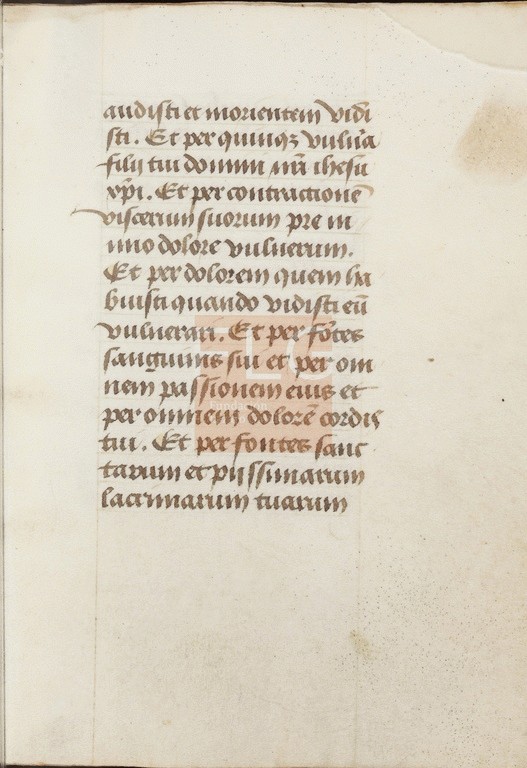 audisti et morientem vidi
sti. Et per quinqȝ vulnr̃a
filij tui domini nr̃i ihesu
xp̃i. Et per contractionē
viscerum suorum pre ni
mio dolore vulnerum.
Et per dolorem quem ha
buisti quando vidisti eū
vulnerari. Et per fōtes
sanguinis sui et per om
nem passionem eius et
per omnem dolorē cordis
tui. Et per fontes sanc
tarum et pijssimarum
lacrimarum tuarum